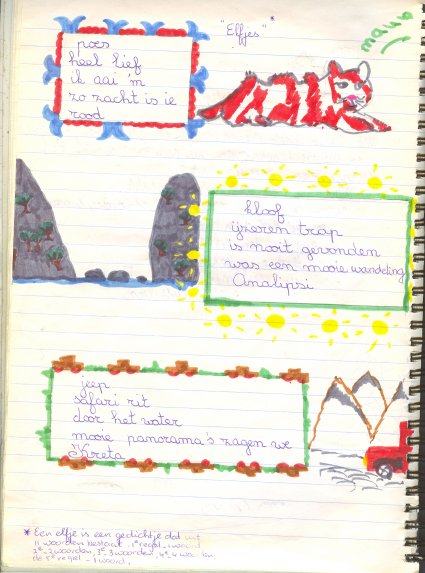 "Elfjes" *
poes
heel lief
ik aai 'm
zo zacht is ie
rood
kloof
ijzeren trap
is nooit gevonden
was een mooie wandeling
Analipsi
jeep
safari rit
door het water
mooie panorama's zagen we
Kreta
* Een elfje is een gedichtje dat uit
11 woorden bestaat. 1e regel - 1 woord
2e - 2 woorden, 3e 3 woorden, 4e 4 woorden
de 5e regel - 1 woord.